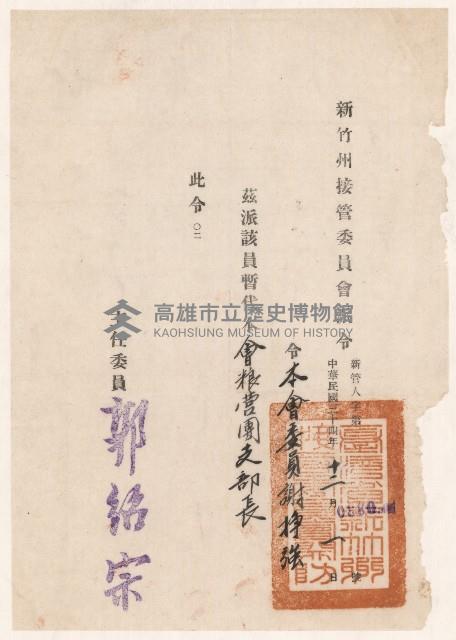 新竹州接管委員會令
新管人字第
0880
號
中華民國三十四年十二月一日
令本會委員謝掙強
茲派該員暫代本會粮营團支部長
此令
主任委員郭紹宗
高雄市立歷史博物館
KAOHSIUNG MUSEUM OF HISTORY